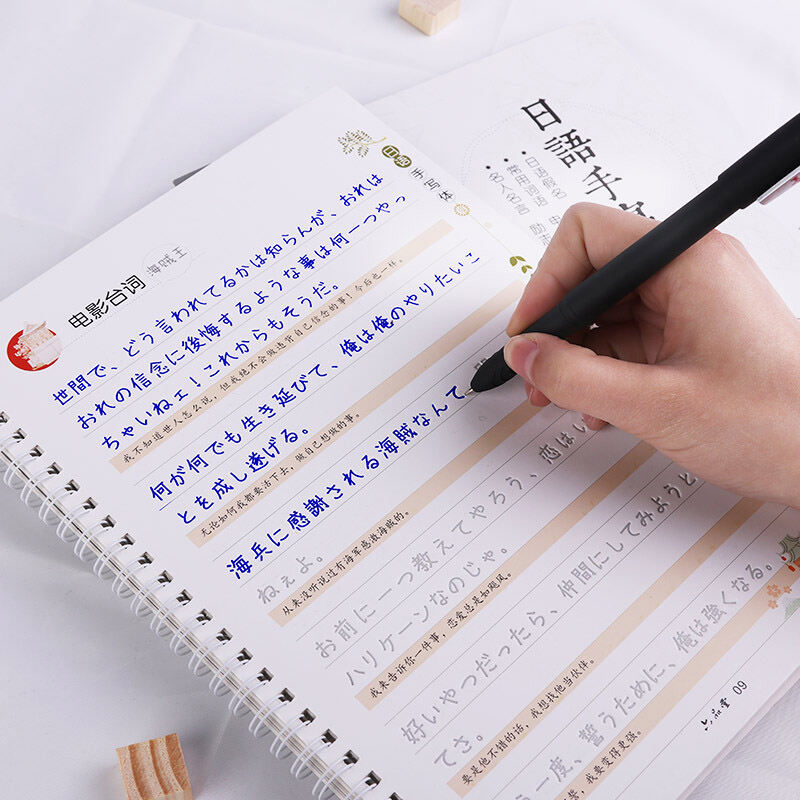 日語手
日语假名
常用词语
名人名言
手写体
电影台词
海贼王
世間で、どう言われてるかは知らんが、おれは
おれの信念に後悔するような事は何一つやっ
ちゃいねェ！これからもそうだ。
我不知道世人怎么说，但我绝不会做违背自己信念的事！今后也一样。
何が何でも生き延びて、俺は俺のやりたいこ
とを成し遂げる。
无论如何我都要活下去，做自己想做的事。
海兵に感謝される海賊なんて
ねぇよ。
从来没听说过有海军感激海贼的。
お前に一つ教えてやろう、恋はい
ハリケーンなのじゃ。
我来告诉你一件事，恋爱总是如飓风。
好いやつだったら、仲間にしてみようと
てさ。
要是他不错的话，我想找他当伙伴。
一度、誓うために、俺は強くなる。
誓，我要变得更强。
六品堂 09